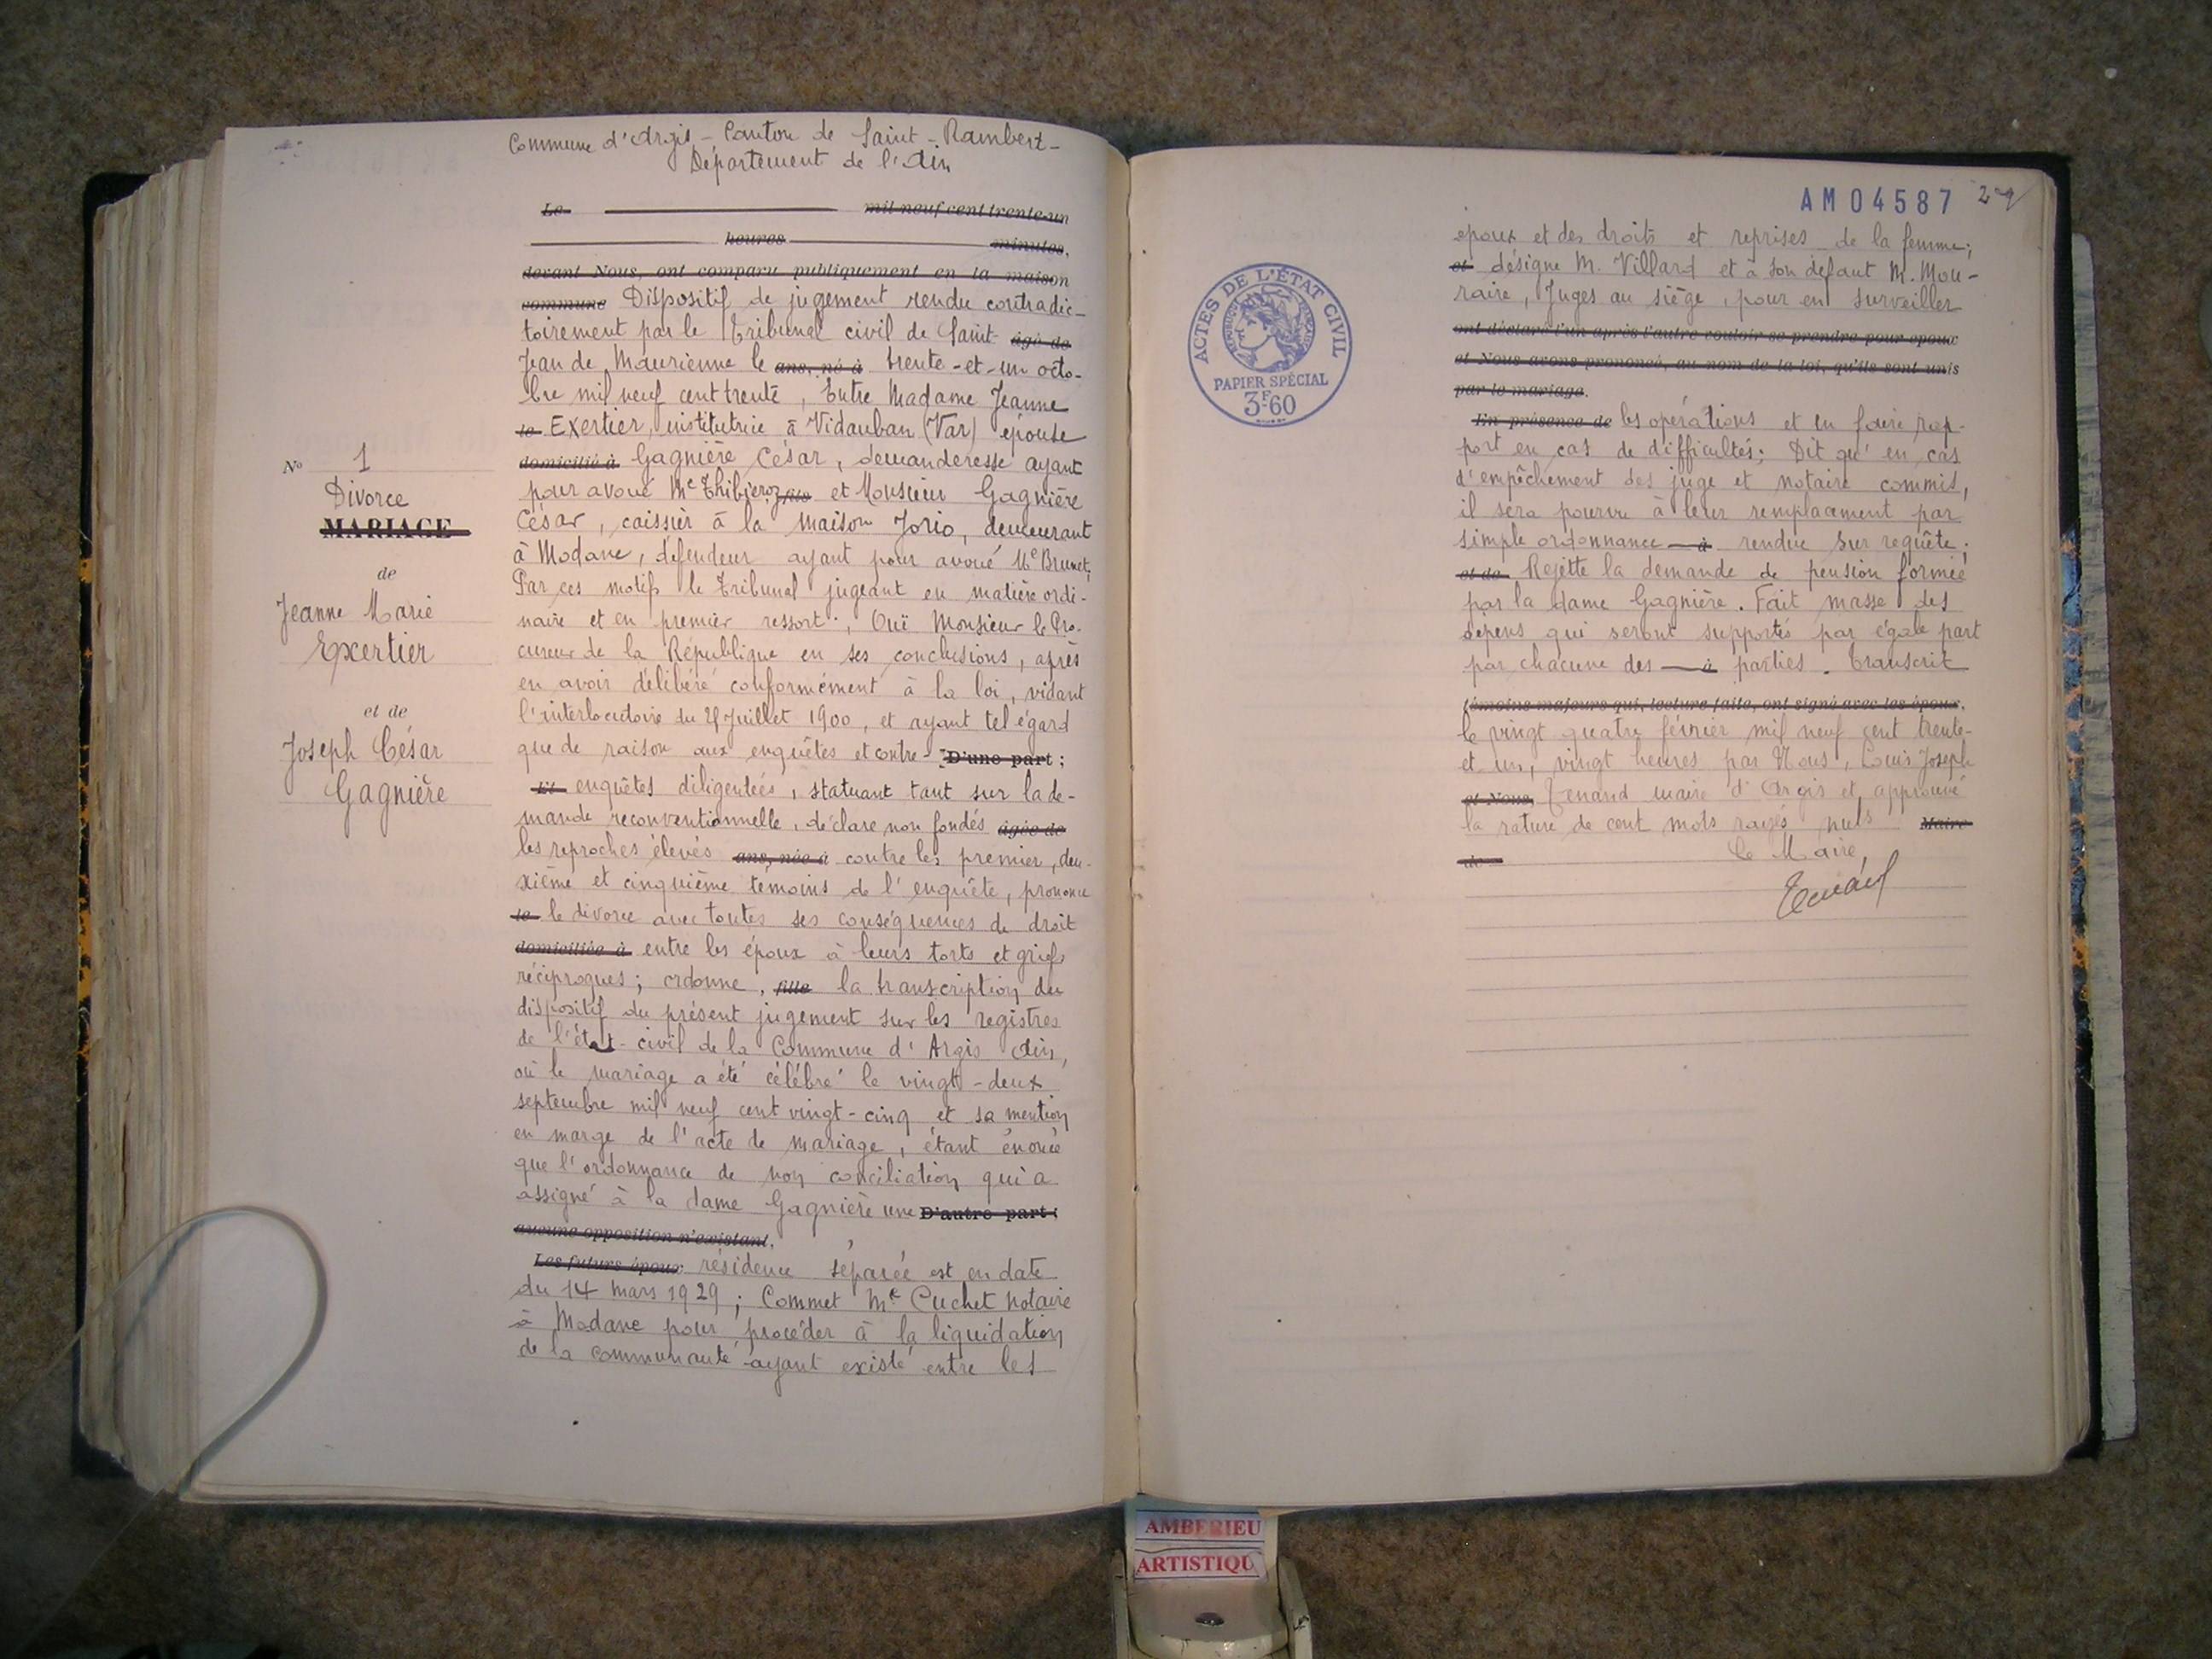 Commune d'Argis - Canton de Saint-Rambert -
Département de l'Ain
Le mil neuf cent trente-un
heures minutes,
devant Nous, ont comparu publiquement en la maison
commune Dispositif de jugement rendu contradic-
toirement par le Tribunal civil de Saint- âgé de
Jean de Maurienne le ans, né à trente-et-un octo-
bre mil neuf cent trente, Entre Madame Jeanne
le Exertier, institutrice à Vidauban (Var) épouse
domicilié à Gagnière César, demanderesse ayant
pour avoué Me Thibieroz fils et Monsieur Gagnière
César, caissier à la maison Jorio, demeurant
à Modane, défendeur ayant pour avoué Me Brunet;
Par ces motifs le Tribunal jugeant en matière ordi-
naire et en premier ressort; Ouï Monsieur le Pro-
cureur de la République en ses conclusions, après
en avoir délibéré conformément à la loi, vidant
l'interlocutoire du Juillet 1900, et ayant tel égard
que de raison aux enquêtes et contre- D'une part;
Et enquêtes diligentées, statuant tant sur la de-
mande reconventionnelle, déclare non fondés âgée de
les reproches élevés ans, née à contre les premier, deu-
xième et cinquième témoins de l'enquête, prononce
le le divorce avec toutes ses conséquences de droit
domiciliée à entre les époux à leurs torts et griefs
réciproques; ordonne, fille la transcription du
dispositif du présent jugement sur les registres
de l'état-civil de la Commune d'Argis Ain,
où le mariage a été célébré le vingt-deux
septembre mil neuf cent vingt-cinq et sa mention
en marge de l'acte de mariage, étant énoncé
que l'ordonnance de non conciliation qui a
assigné à la dame Gagnière une D'autre part;
aucune opposition n'existant.
Les futurs époux résidence séparée est en date
du 14 mars 1929; Commet Me Cuchet notaire
à Modane pour procéder à la liquidation
de la communauté ayant existé entre les
No 1
Divorce
MARIAGE
de
Jeanne Marie
Exertier
et de
Joseph César
Gagnière
AM04587
ACTES DE L'ÉTAT CIVIL
RÉPUBLIQUE FRANÇAISE
PAPIER SPÉCIAL
3F60
époux et des droits et reprises de la femme;
et désigne M. Villard et à son défaut M. Mou-
raire, Juges au siège, pour en surveiller
ont déclaré l'un après l'autre vouloir se prendre pour époux
et Nous avons prononcé, au nom de la loi, qu'ils sont unis
par le mariage.
En présence de les opérations et en faire rap-
port en cas de difficultés; Dit qu'en cas
d'empêchement des juge et notaire commis,
il sera pourvu à leur remplacement par
simple ordonnance à rendue sur requête;
et de Rejette la demande de pension formée
par la dame Gagnière. Fait masse des
dépens qui seront supportés par égale part
par chacune des à parties. Transcrit
témoins majeurs qui, lecture faite, ont signé avec les époux.
le vingt quatre février mil neuf cent trente-
et un, vingt heures par Nous, Louis Joseph
et Nous, Tenand maire d'Argis et approuvé
la rature de cent mots rayés nuls Maire
de Le Maire,
Tenand
AMBERIEU
ARTISTIQU